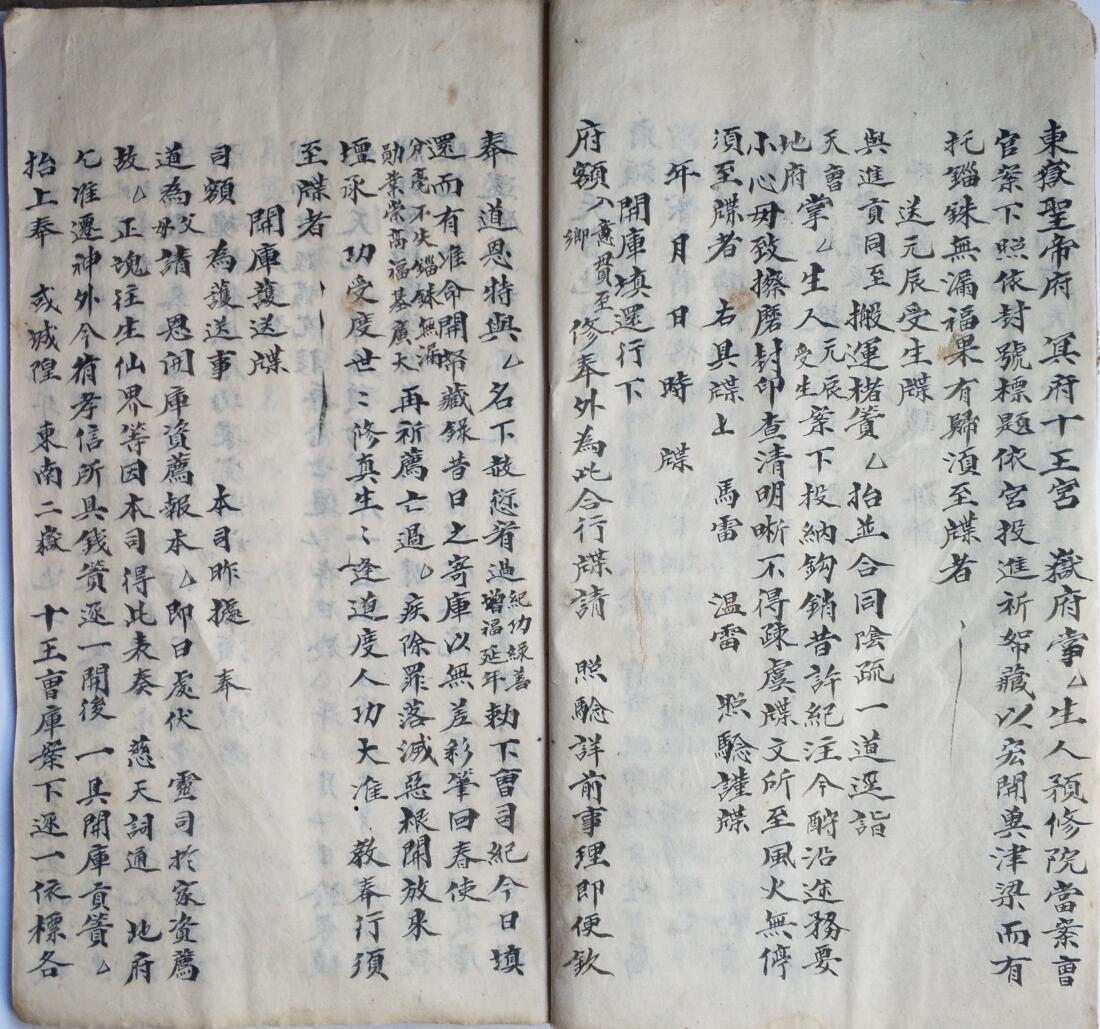 東嶽聖帝府　冥府十王宮　嶽府掌厶生人預修院當案曺
官案下照依封號標題依宮投進祈帑藏以宏開輿津梁而有
托錙銖無漏福果有歸須至牒者
送元辰受生牒
與進貢同至　搬運楮簀厶　抬並合同陰疏一道逕詣
天曺地府掌厶生人元辰受生案下投納鈎銷昔許紀注今酧沿途務要
小心毋致擦磨封印查清明晰不得疎虞牒文所至風火無停
須至牒者　右具牒上　馬雷　温雷　照騐謹牒
年　月　日　時　牒
開庫填還行下
府額　入意鄉貫至　修奉外為此合行牒請　照騐詳前事理即便欽
奉道恩特與厶名下赦愆宥過紀功綠善增福延年勅下曺司紀今日填
還而有准命開帑藏錄昔日之寄庫以無差彩筆回春使
分毫不失錙銖無漏勛業崇高福基廣大再祈薦亡過厶疾除罪落滅惡根開放來
壇承功受度世〻修真生〻逢道度人功大准教奉行須
至牒者
開庫護送牒
司額　為護送事　本司昨據　奉
道為父母請　恩開庫資薦報本厶即日處伏　靈司扵家資薦
故厶正魂往生仙界等因本司得此表奏　慈天詞通　地府
乞准遷神外今有孝信所具錢簀逐一開後　一具開庫貢簀厶
抬上奉　或城隍東南二嶽　十王曺庫案下逐一依標各